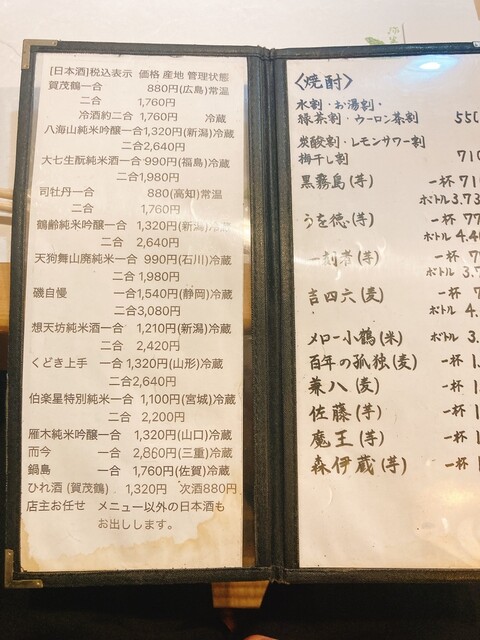 [日本酒]税込表示 価格 産地 管理状態
賀茂鶴一合 880円(広島)常温
二合 1,760円
冷酒約二合 1,760円 冷蔵
八海山純米吟醸一合1,320円(新潟)冷蔵
二合2,640円
大七生酛純米酒一合 990円(福島)冷蔵
二合1,980円
司牡丹一合 880(高知)常温
二合 1,760円
鶴齢純米吟醸一合 1,320円(新潟)冷蔵
二合 2,640円
天狗舞山廃純米一合 990円(石川)冷蔵
二合 1,980円
磯自慢 一合1,540円(静岡)冷蔵
二合3,080円
想天坊純米酒一合 1,210円(新潟)冷蔵
二合 2,420円
くどき上手 一合 1,320円(山形)冷蔵
二合2,640円
伯楽星特別純米一合 1,100円(宮城)冷蔵
二合 2,200円
雁木純米吟醸一合 1,320円(山口)冷蔵
而今 一合 2,860円(三重)冷蔵
鍋島 一合 1,760円(佐賀)冷蔵
ひれ酒 (賀茂鶴) 1,320円 次酒880円
店主お任せ メニュー以外の日本酒も
お出しします。
〈焼酎〉
水割・お湯割・
緑茶割・ウーロン茶割 550
炭酸割・レモンサワー割
梅干し割 710
黒霧島(芋) 一杯 710
ボトル3.73
うを徳(芋) 一杯 77
ボトル 4.40
一刻者(芋) 一杯 7
ボトル 3.7
吉四六(麦) 一杯 7
ボトル 4.
メロー小鶴(米) ボトル 3.
百年の孤独(麦) 一杯 1.
兼八(麦) 一杯 1
佐藤(芋) 一杯 1
魔王(芋) 一杯 1
森伊蔵(芋) 一杯 1